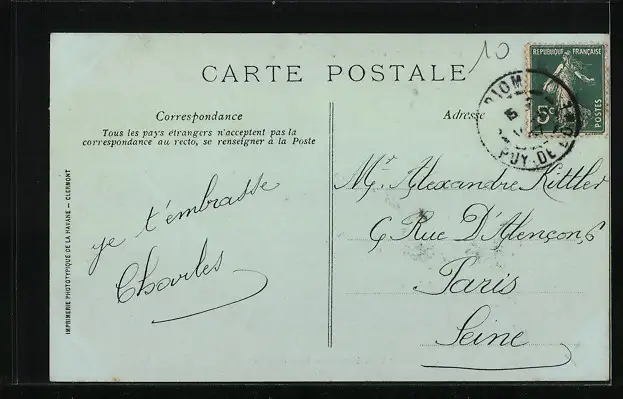 10
CARTE POSTALE
REPUBLIQUE FRANÇAISE
5c
POSTES
RIOM
PUY-DE-DOME
Correspondance
Tous les pays étrangers n'acceptent pas la
correspondance au recto, se renseigner à la Poste
Adresse
je t'embrasse
Charles
Mr Alexandre Kittler
6 Rue D'Alençon, 6
Paris
Seine
IMPRIMERIE PHOTOTYPIQUE DE LA HAVANE — CLERMONT